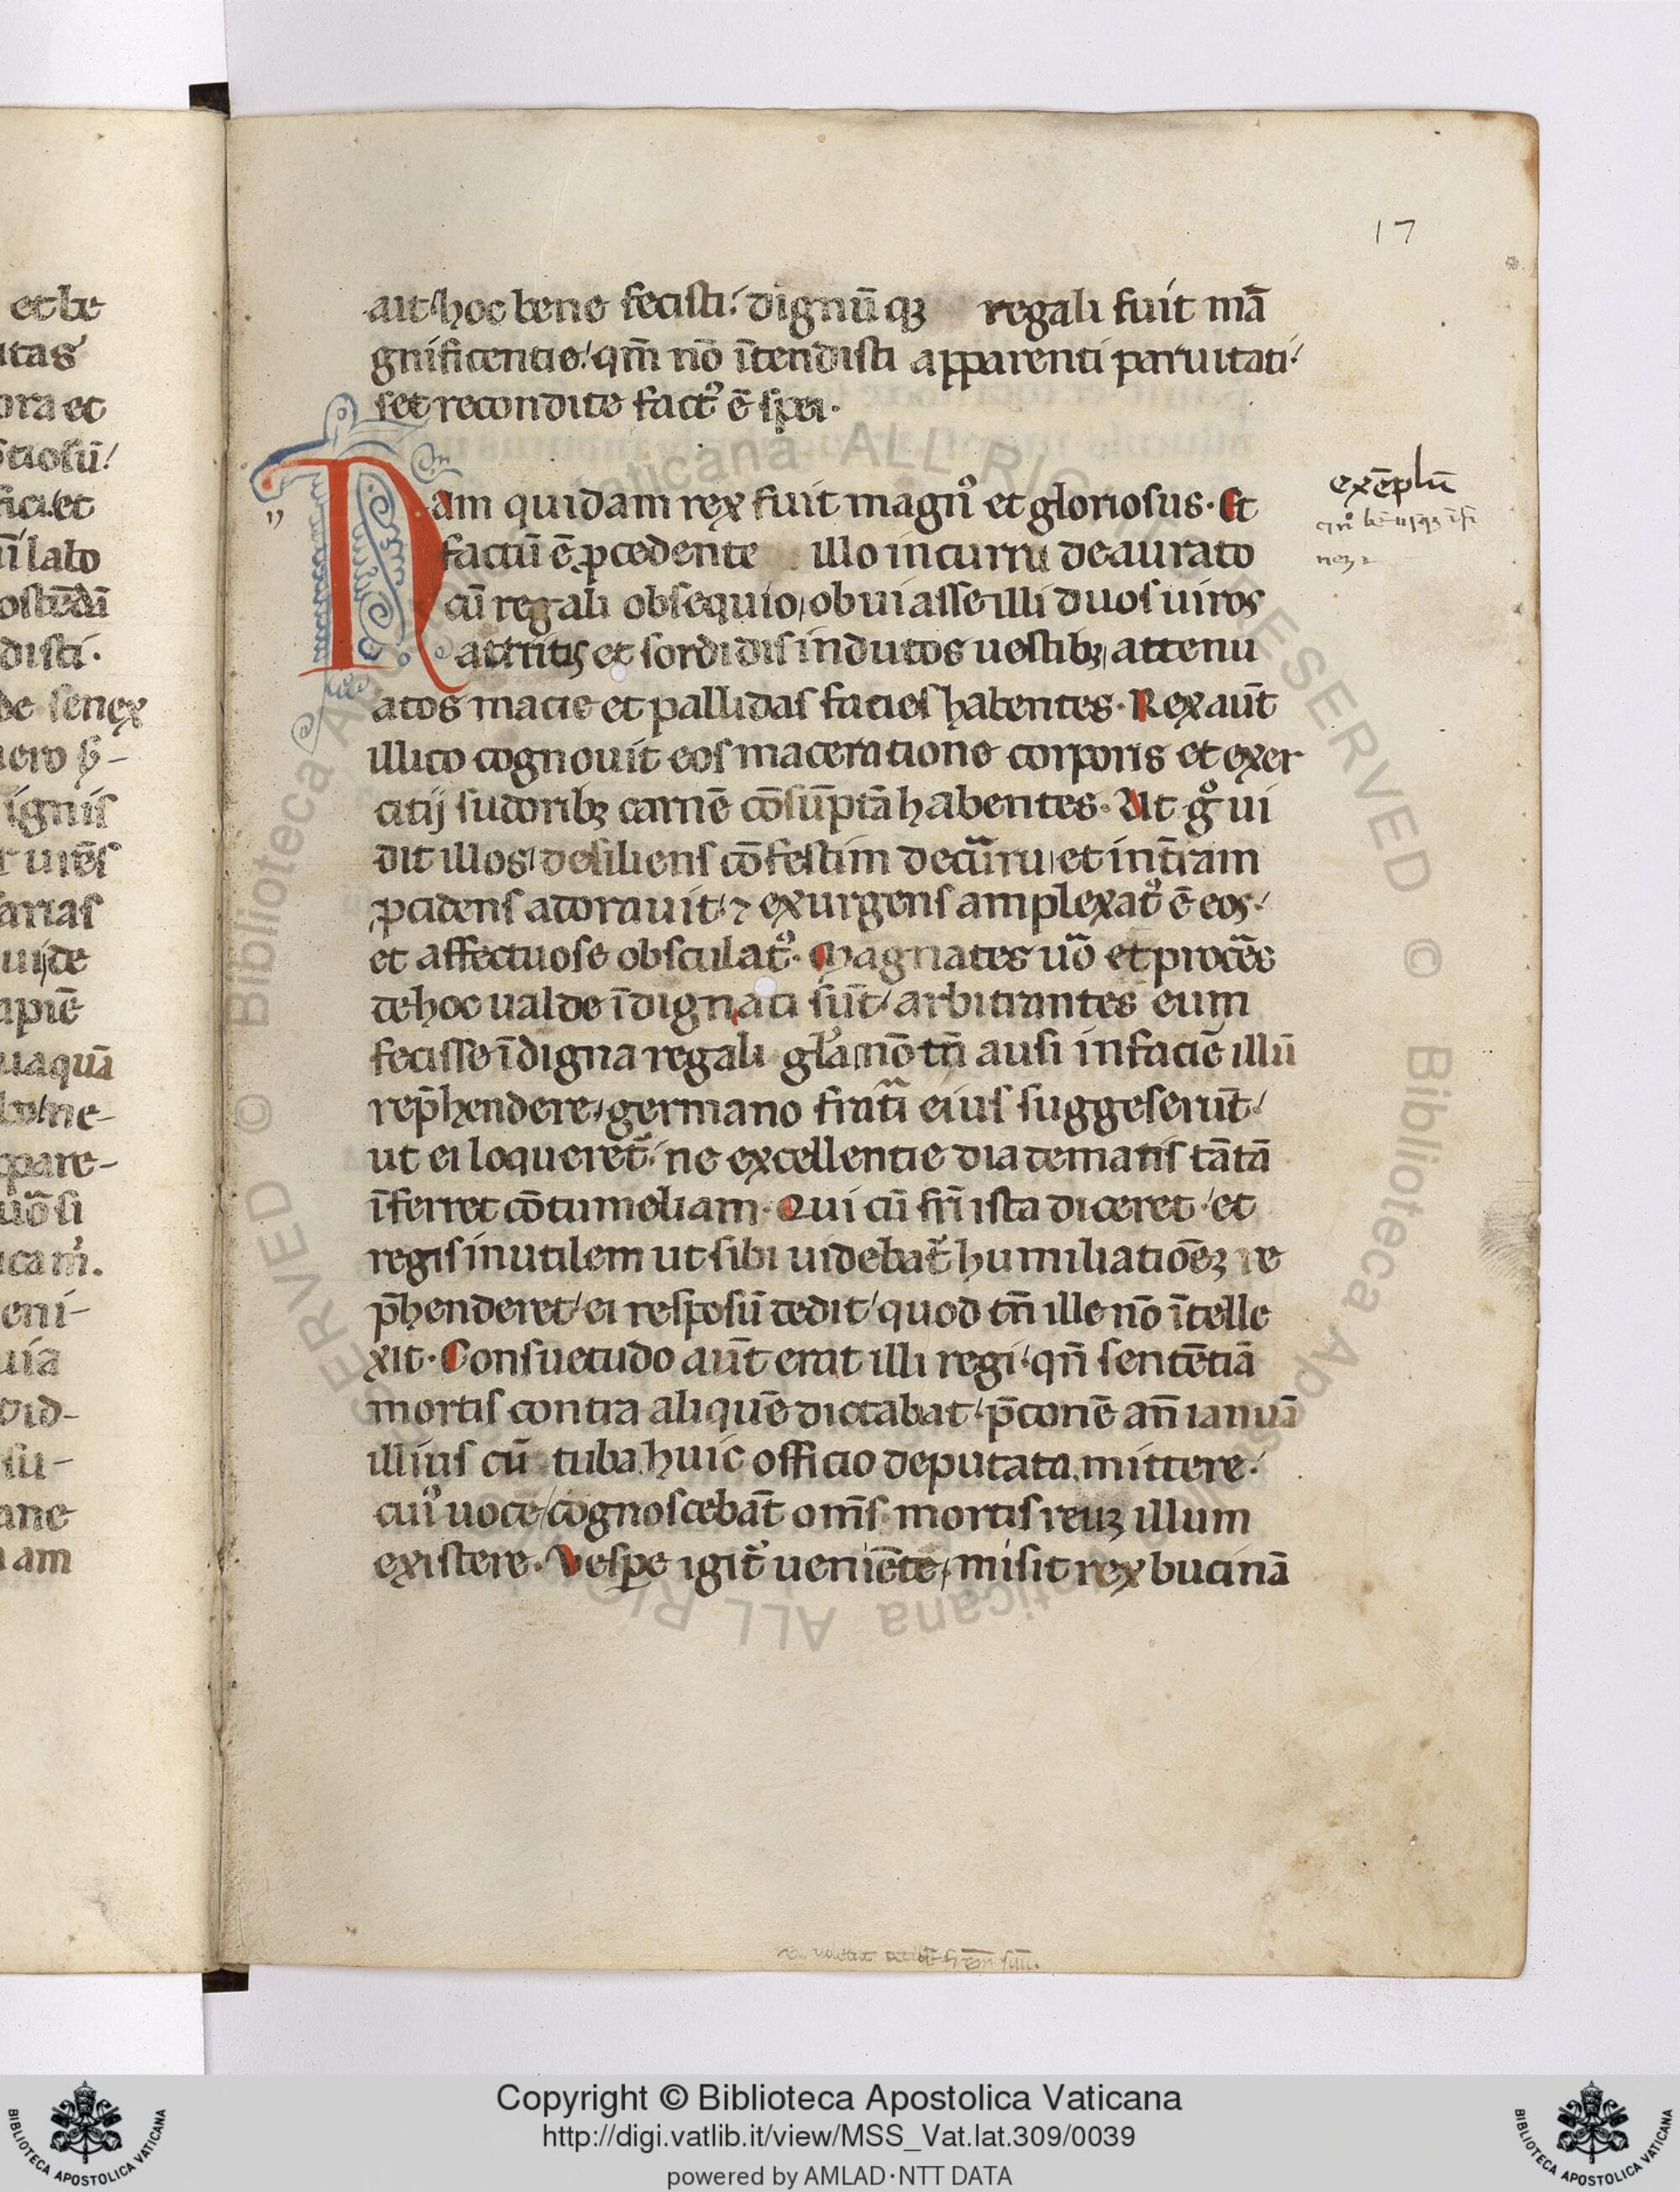 17
et be
itas
ora et
fici et
lato
disti.
de senex
uero
ignis
arias
uide
apiē
uaquā
pare-
uō si
eni-
uia
did-
su-
ane
am
ait/hoc bene fecisti/dignū qꝫ regali fuit mā
gnificentie/qm̄ nō ītendisti apparenti paruitati/
set recondite fact᷒ ē spei.
Nam quidam rex fuit magn᷒ et gloriosus. Et
factū ē ꝓcedente illo in curru deaurato
cū regali obsequio, obuiasse illi duos uiros
attritis et sordidis indutos uestibꝫ, attenu
atos macie et pallidas facies habentes. Rex aūt
illico cognouit eos maceratione corporis et exer
citij sudoribꝫ carnē cōsūptā habentes. Ut gͦ ui
dit illos/desiliens cōfestim de curru, et in t̄ram
ꝓcidens adorauit/⁊ exurgens amplexat᷒ ē eos/
et affectuose obsculat᷒. Magnates uo̅ et proce̅s
de hoc ualde īdignati sūt/arbitrantes eum
fecisse īdigna regali gl̄a, nō tn̄ ausi in faciē illū
rep̄hendere, germano fratri eius suggeserūt/
ut ei loqueret᷑/ne excellentie diadematis tātā
īferret cōtumeliam. Qui cū fr̄i ista diceret/et
regis inutilem ut sibi uidebat᷑ humiliatiōeꝫ re
p̄henderet/ei respōsū dedit/quod tn̄ ille nō ītelle
xit. Consuetudo aūt erat illi regi/qn̄ sentētiā
mortis contra aliquē dictabat/p̄conē an̄ ianuā
illius cū tuba huic officio deputata mittere/
cui᷒ uoce/cognoscebāt om̄s mortis reuꝫ illum
existere. Vespe igit᷑ ueniēte, misit rex bucinā
exēplū
Biblioteca Apostolica Vaticana ALL RIGHTS RESERVED ©
Copyright © Biblioteca Apostolica Vaticana
http://digi.vatlib.it/view/MSS_Vat.lat.309/0039
powered by AMLAD·NTT DATA
BIBLIOTECA APOSTOLICA VATICANA
BIBLIOTECA APOSTOLICA VATICANA